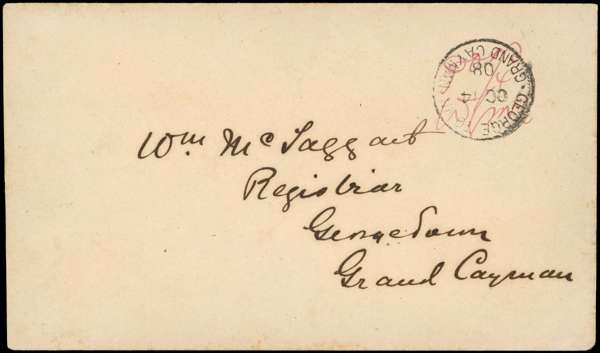 GEORGE TOWN
GRAND CAYMAN
OC 4
08
Wm McTaggart
Registrar
Georgetown
Grand Cayman